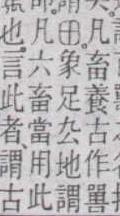 凡畜養古作嘼
謂田象足厹地謂
凡六畜當用此
也。言此者、謂古